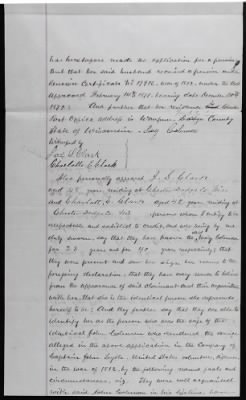 has heretofore made no application for a pension
But that her said husband received a pension under
Pension Certificate No of war of 1812, under the act
approved February 14th 1871, bearing date December
1872. And further that her residence and
Post Office address is Waupun, Dodge County
State of Wisconsin. Lucy Coleman
Attested by
Clark
Charlotte C. Clark
Also personally appeared J. D. Clark
aged years, residing at Chester Dodge Co. Wis
and Charlotte C. Clark aged 42 years, residing at
Chester Dodge Co Wis persons whom I certify to be
respectable and entitled to credit, and who being by me
duly sworn, say that they have known the said Lucy Coleman
for 22 years and for years respectively; that
they were present and saw her sign her name to the
foregoing declaration; that they have every reason to believe
from the appearance of said claimant and their acquaintance
with her, that she is the identical person she represents
herself to be: And they further say that they are able to
identify her as the person who was the wife of the
identical John Coleman who rendered the service
alleged in the above application in the Company of
Captain John Lytle, United States volunteers,
in the war of 1812, by the following named facts and
circumstances, viz. They were well acquainted
with said John Coleman in his lifetime,